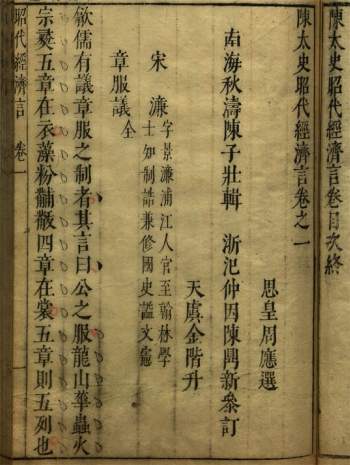 陳太史昭代經濟言卷目次終
陳太史昭代經濟言卷之一
思皇周應選
南海秋濤陳子壯輯 浙氾仲因陳閎新叅訂
天虞金階升
宋濂 字景濂浦江人官至翰林學
士知制誥兼修國史謚文憲
章服議 全
歙儒有議章服之制者其言曰公之服龍山華蟲火
宗彜五章在衣藻粉黼黻四章在裳五章則五列也
昭代經濟言 卷一